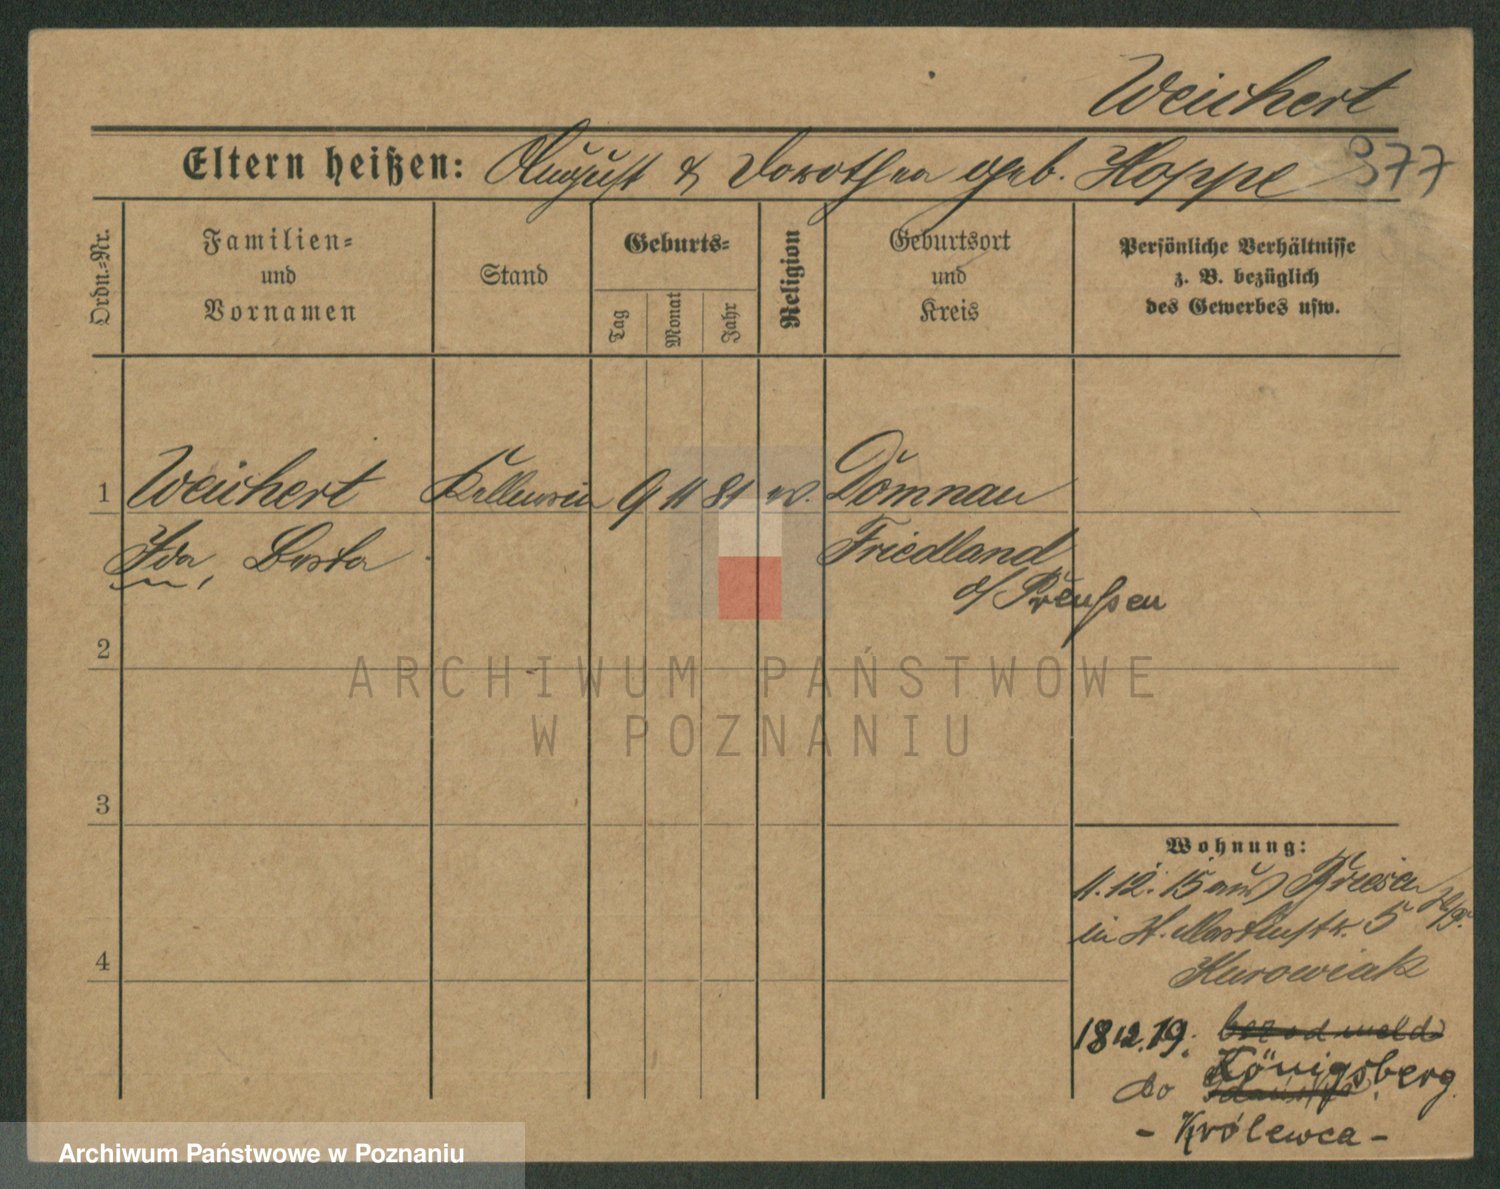 Weichert
Eltern heißen: August & Dorothea geb. Hoppe 377
Ordn.=Nr.
Familien=
und
Vornamen
Stand
Geburts=
Tag
Monat
Jahr
Religion
Geburtsort
und
Kreis
Persönliche Verhältnisse
z. B. bezüglich
des Gewerbes usw.
1 Weichert Kellnerin 9 11 81 ev. Domnau
Ida, Berta Friedland
o/ Preußen
2
ARCHIWUM PAŃSTWOWE
W POZNANIU
3
Wohnung:
4.12.15 aus Briesen
in St. Martinstr. 5
4
Kurowiak
18 12.19. bez odmeld
do Königsberg
- Królewca -
Archiwum Państwowe w Poznaniu